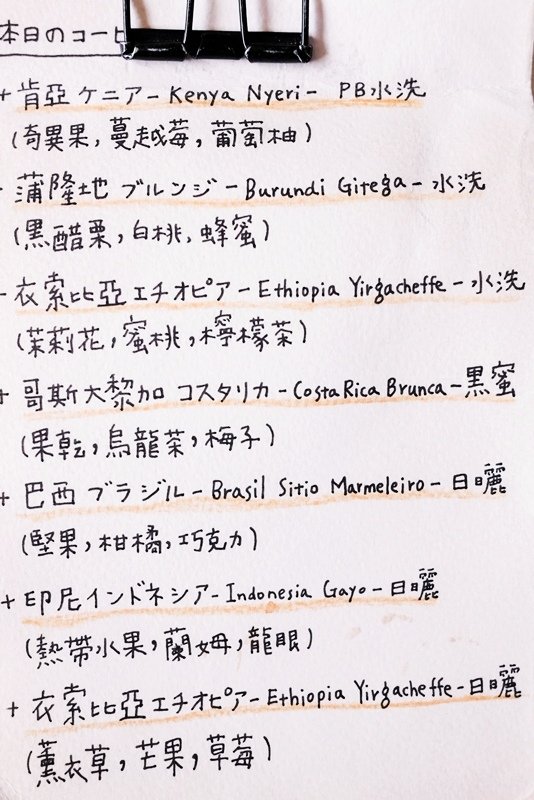 本日のコーヒ
+ 肯亞 ケニアー Kenya Nyeri - PB水洗
(奇異果, 蔓越莓, 葡萄柚)
- 蒲隆地 ブルンジー Burundi Gitega - 水洗
(黑醋栗, 白桃, 蜂蜜)
- 衣索比亞 エチオピアー Ethiopia Yirgacheffe - 水洗
(茉莉花, 蜜桃, 檸檬茶)
+ 哥斯大黎加 コスタリカ - Costa Rica Brunca - 黑蜜
(果乾, 烏龍茶, 梅子)
+ 巴西 ブラジル - Brasil Sitio Marmeleiro - 日曬
(堅果, 柑橘, 巧克力)
+ 印尼 インドネシアー Indonesia Gayo - 日曬
(熱帶水果, 蘭姆, 龍眼)
+ 衣索比亞 エチオピアー Ethiopia Yirgacheffe - 日曬
(薰衣草, 芒果, 草莓)